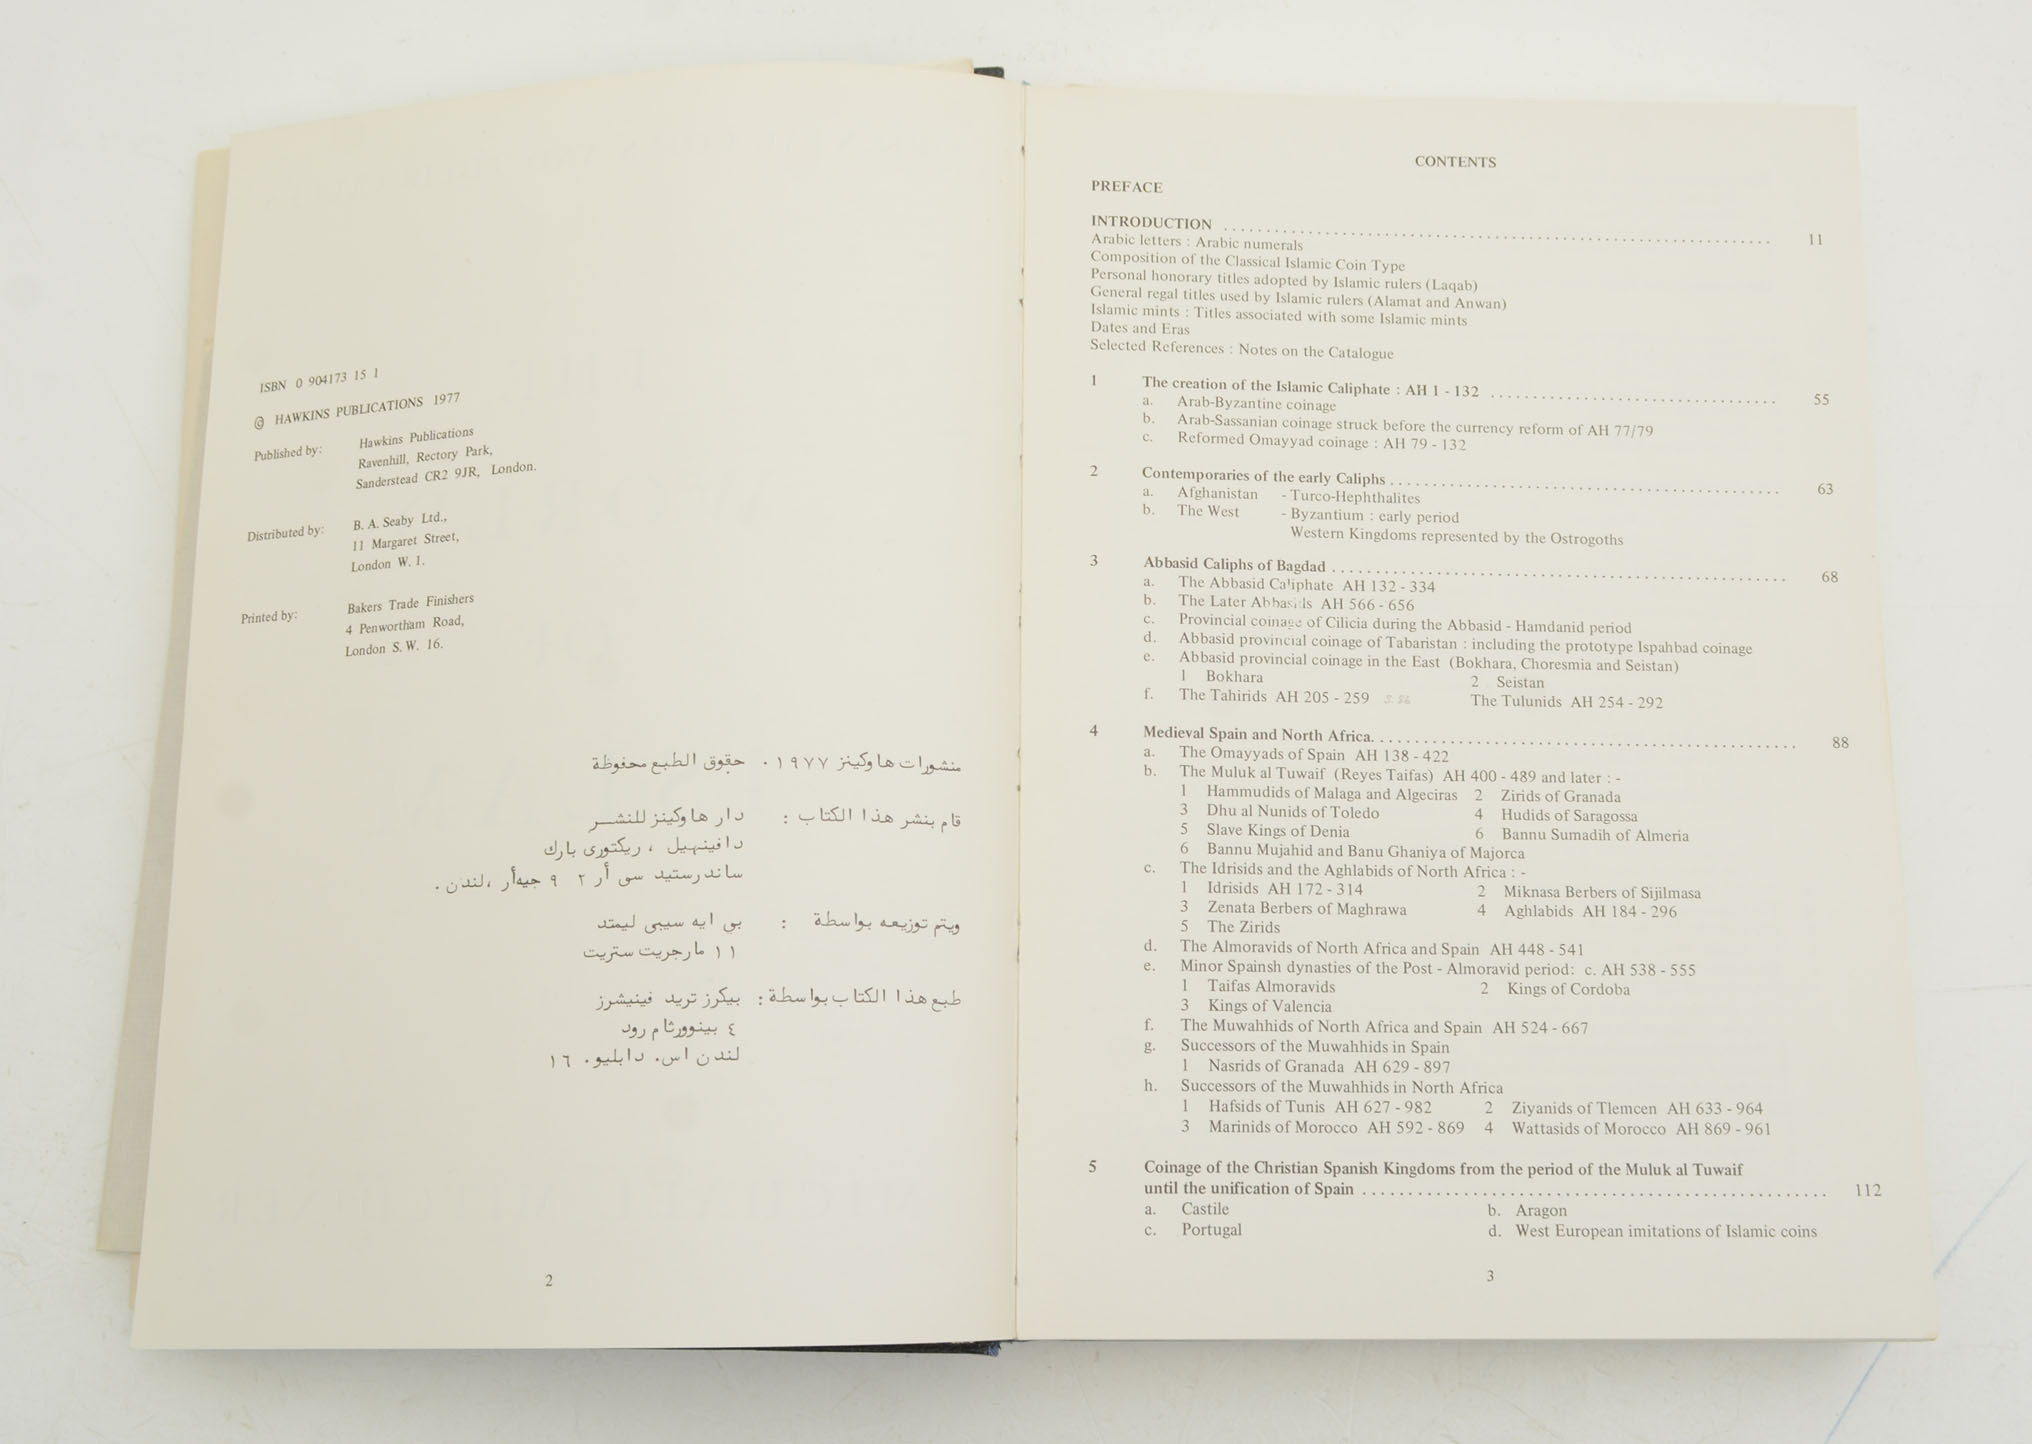 ISBN 0 904173 15 1
© HAWKINS PUBLICATIONS 1977
Published by: Hawkins Publications
Ravenhill, Rectory Park,
Sanderstead CR2 9JR, London.
Distributed by: B. A. Seaby Ltd.,
11 Margaret Street,
London W. 1.
Printed by: Bakers Trade Finishers
4 Penwortham Road,
London S. W. 16.
منشورات هاوكينز ١٩٧٧ . حقوق الطبع محفوظة
قام بنشر هذا الكتاب : دار هاوكينز للنشر
دافينهيل ، ريكتورى بارك
ساندرستيد سى أر ٢ ٩ جيه أر ، لندن .
ويتم توزيعه بواسطة : بى ايه سيبى ليمتد
١١ مارجريت ستريت
طبع هذا الكتاب بواسطة : بيكرز تريد فينيشرز
٤ بينوورثام رود
لندن اس. دابليو. ١٦
2
CONTENTS
PREFACE
INTRODUCTION 11
Arabic letters : Arabic numerals
Composition of the Classical Islamic Coin Type
Personal honorary titles adopted by Islamic rulers (Laqab)
General regal titles used by Islamic rulers (Alamat and Anwan)
Islamic mints : Titles associated with some Islamic mints
Dates and Eras
Selected References : Notes on the Catalogue
1 The creation of the Islamic Caliphate : AH 1 - 132 55
a. Arab-Byzantine coinage
b. Arab-Sassanian coinage struck before the currency reform of AH 77/79
c. Reformed Omayyad coinage : AH 79 - 132
2 Contemporaries of the early Caliphs 63
a. Afghanistan - Turco-Hephthalites
b. The West - Byzantium : early period
Western Kingdoms represented by the Ostrogoths
3 Abbasid Caliphs of Bagdad 68
a. The Abbasid Caliphate AH 132 - 334
b. The Later Abbasids AH 566 - 656
c. Provincial coinage of Cilicia during the Abbasid - Hamdanid period
d. Abbasid provincial coinage of Tabaristan : including the prototype Ispahbad coinage
e. Abbasid provincial coinage in the East (Bokhara, Choresmia and Seistan)
1 Bokhara 2 Seistan
f. The Tahirids AH 205 - 259 The Tulunids AH 254 - 292
4 Medieval Spain and North Africa. 88
a. The Omayyads of Spain AH 138 - 422
b. The Muluk al Tuwaif (Reyes Taifas) AH 400 - 489 and later : -
1 Hammudids of Malaga and Algeciras 2 Zirids of Granada
3 Dhu al Nunids of Toledo 4 Hudids of Saragossa
5 Slave Kings of Denia 6 Bannu Sumadih of Almeria
6 Bannu Mujahid and Banu Ghaniya of Majorca
c. The Idrisids and the Aghlabids of North Africa : -
1 Idrisids AH 172 - 314 2 Miknasa Berbers of Sijilmasa
3 Zenata Berbers of Maghrawa 4 Aghlabids AH 184 - 296
5 The Zirids
d. The Almoravids of North Africa and Spain AH 448 - 541
e. Minor Spainsh dynasties of the Post - Almoravid period: c. AH 538 - 555
1 Taifas Almoravids 2 Kings of Cordoba
3 Kings of Valencia
f. The Muwahhids of North Africa and Spain AH 524 - 667
g. Successors of the Muwahhids in Spain
1 Nasrids of Granada AH 629 - 897
h. Successors of the Muwahhids in North Africa
1 Hafsids of Tunis AH 627 - 982 2 Ziyanids of Tlemcen AH 633 - 964
3 Marinids of Morocco AH 592 - 869 4 Wattasids of Morocco AH 869 - 961
5 Coinage of the Christian Spanish Kingdoms from the period of the Muluk al Tuwaif
until the unification of Spain 112
a. Castile b. Aragon
c. Portugal d. West European imitations of Islamic coins
3